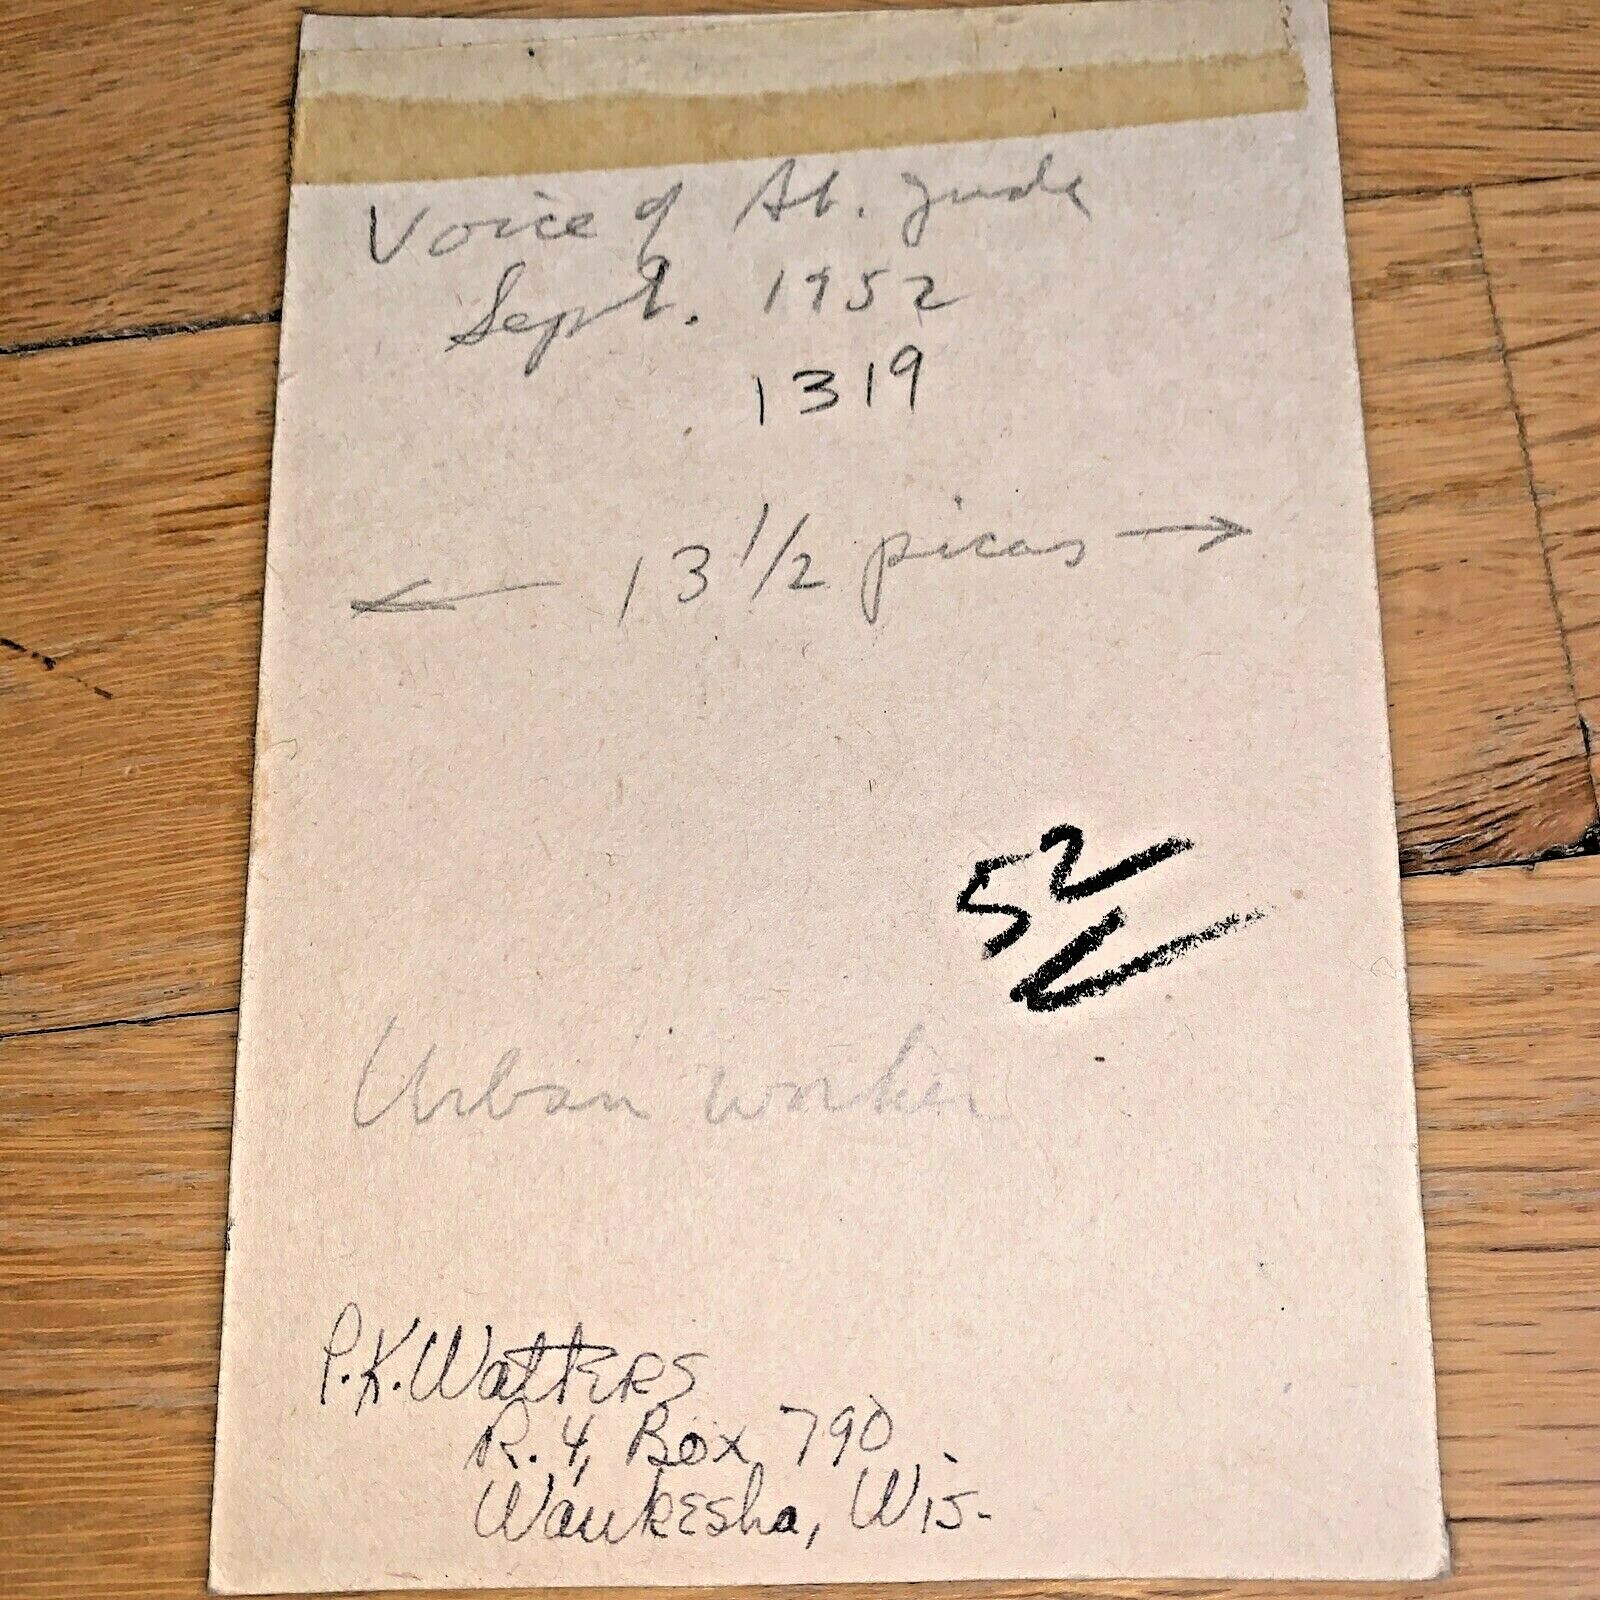 Voice of St. Jude
Sept. 1952
1319
← 13 1/2 picas →
52
Urban worker
P.K. Watters
R. 4, Box 790
Waukesha, Wis.